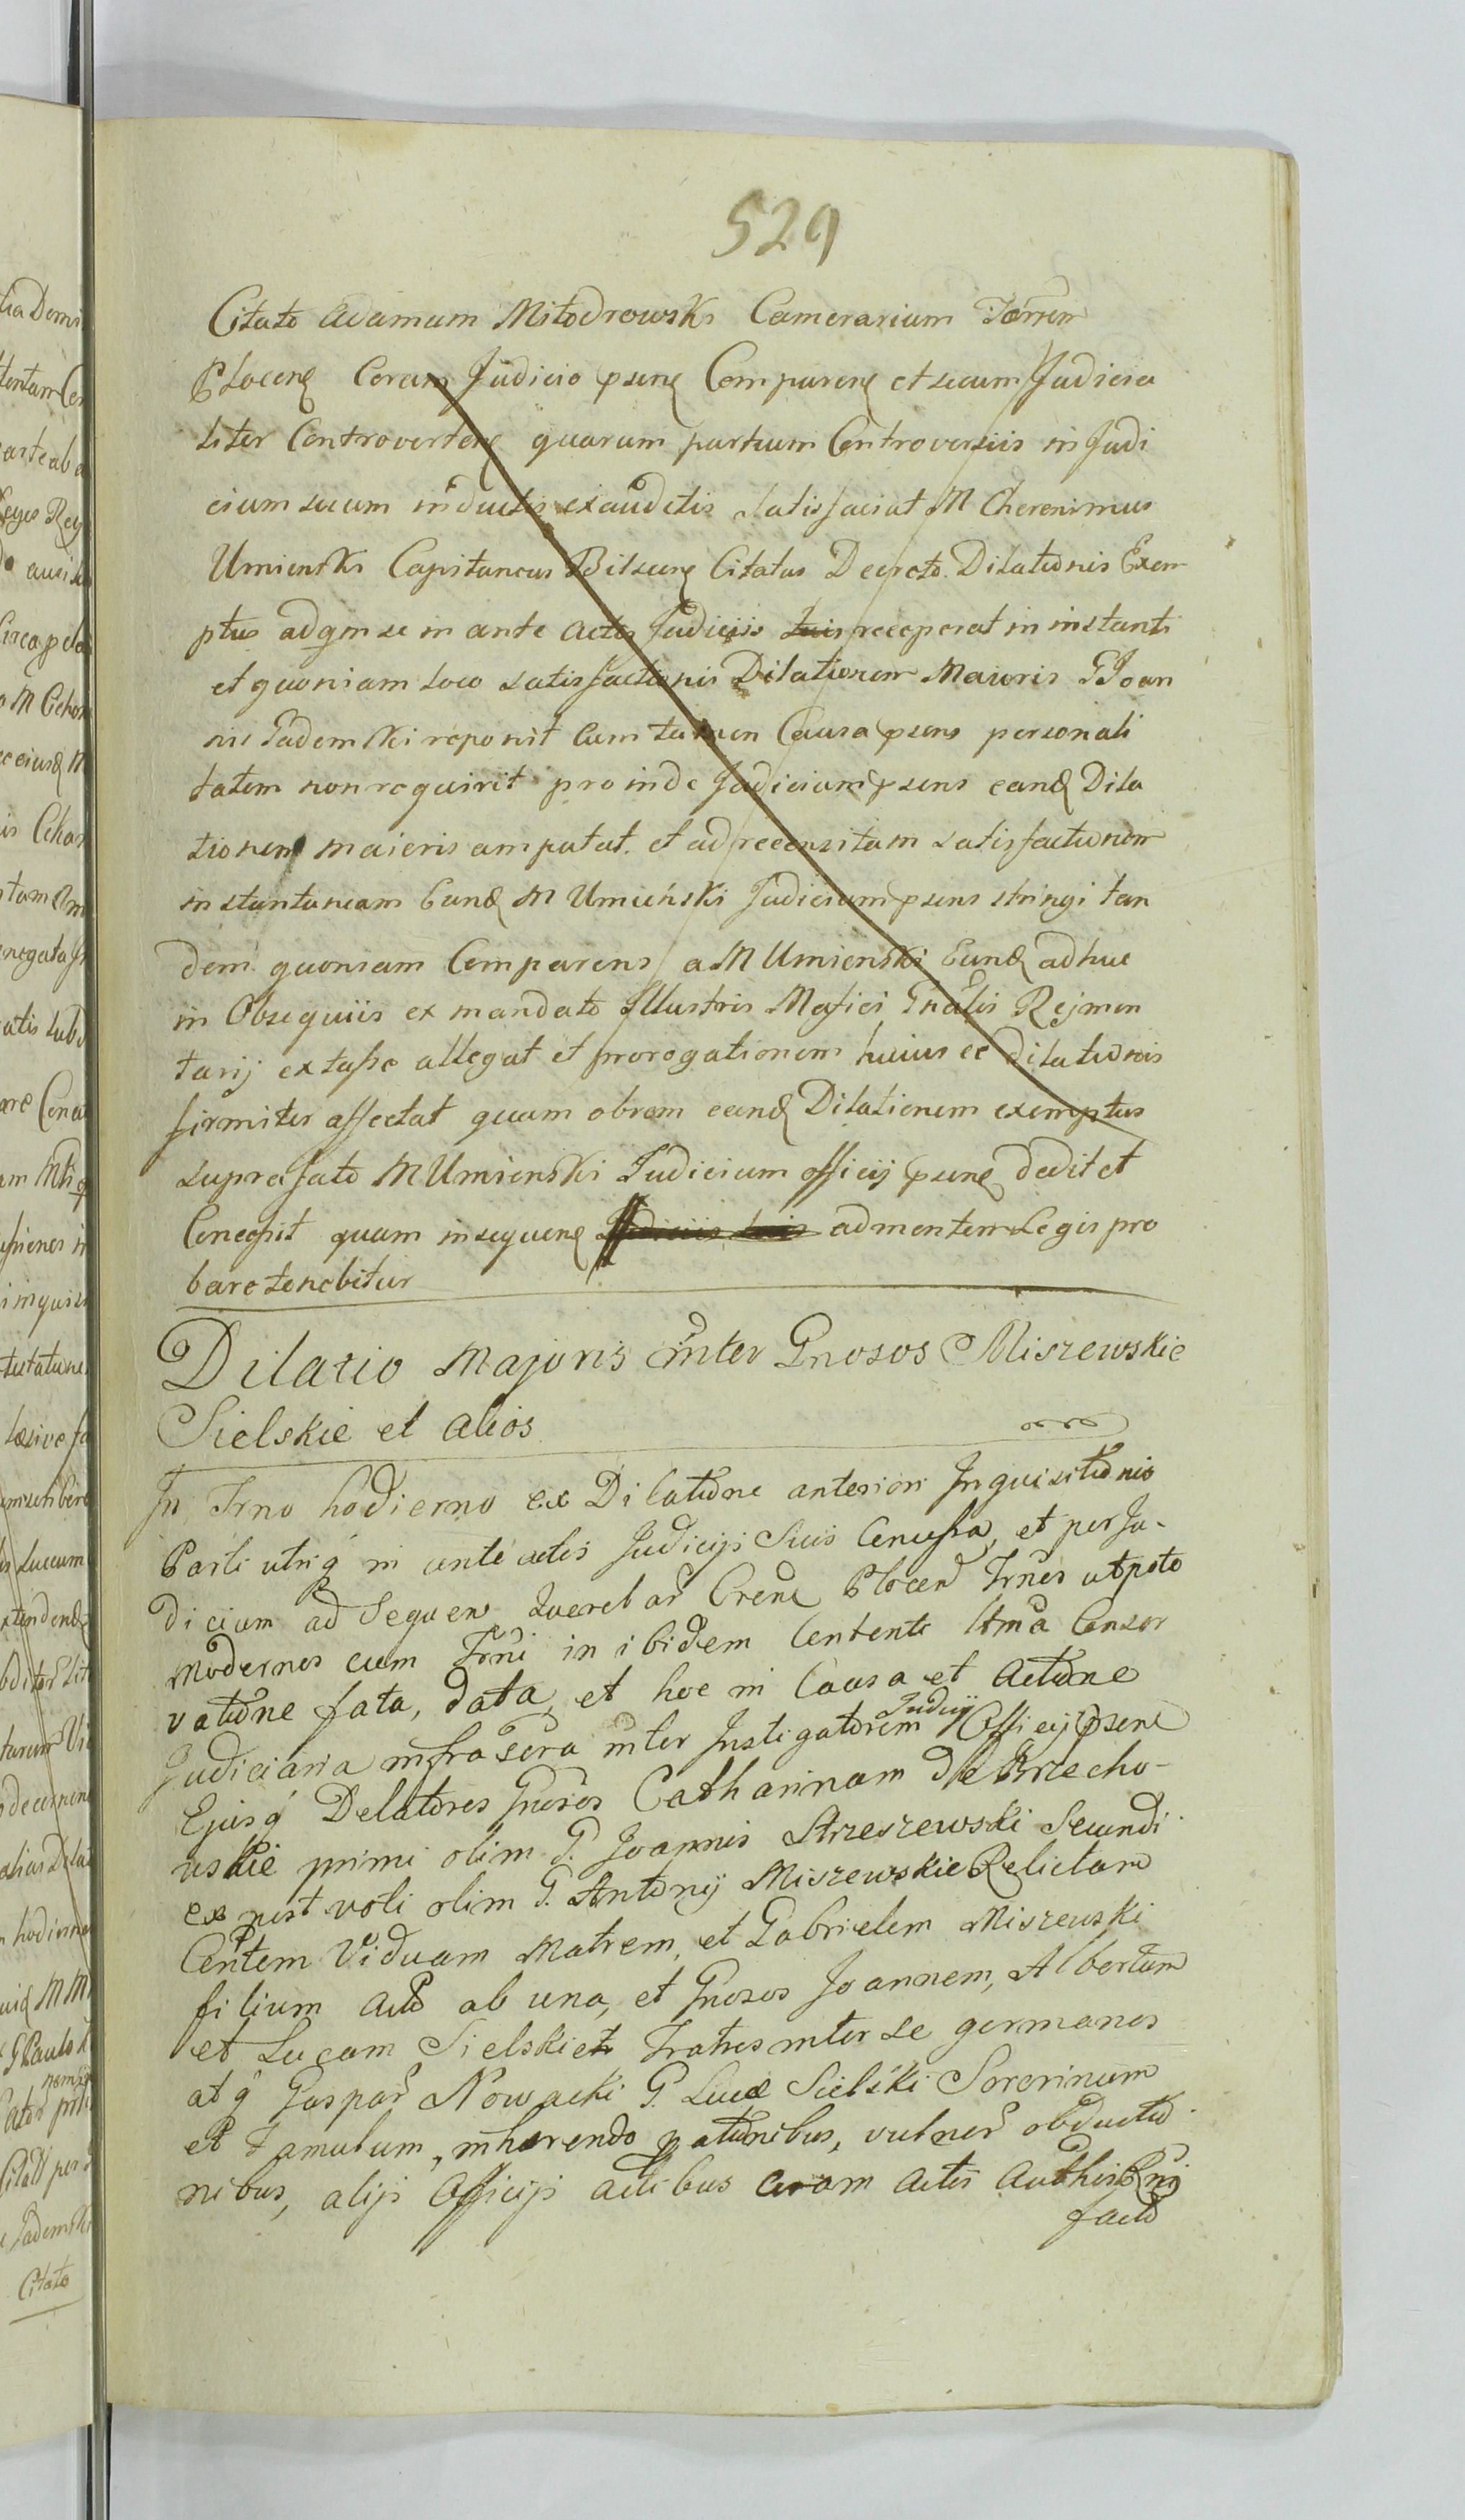 529
Citato Adamum Mitodrowski Camerarium Terrem
Plocen Coram Judicio psen Comparen et secum Judicia
liter Controverten quarum partium Controversiis in Judi
cium suum inductis exauditis satisfaciat M Cheronimus
Umienski Capitaneus Bilscen Citatus Decreto Dilationis Exem
ptus ad qm se in ante actis Judiciis suis receperat in instanti
et quoniam loco satisfactionis Dilationem Maioris G Joan
nis Pademski reponit Cum tamen Causa psens personali
tatem non requirit pro inde Judicium psens eand Dila
tionem maioris amputat et ad recensitam satisfactionem
instantaneam Eund M Umieński Judicium psens stringi tan
dem quoniam Comparens a M Umienski Eund adhuc
in Obsequiis ex mandato Illustris Mafici Gnalis Rejmen
tarij extasse allegat et prorogationem huius ce dilationis
firmiter affectat quam obrem eand Dilationem exemptus
suprafato M Umienski Judicium officij psen dedit et
Concessit quam in sequen Judiciis suis ad mentem Legis pro
bare tenebitur
Dilatio Majoris inter Gnosos Miszewskie
Sielskie et alios
In Trno hodierno ex Dilatione anteriori Inquisitionis
Parti utriq in anteactis Judicijs Suis Concessa, et per Ju-
dicium ad Sequen Querel ar Crene Plocen Trnos utpote
modernos cum Trni in ibidem Contenti Itma Conser
vatione fata, data, et hoc in Causa et Actione
Judiciaria infrascra inter Instigatorem Judicij Officij psene
Ejusq Delatores Gnosos Catharinam de Brzecho-
wskie primi olim G. Joannis Strzeszewski Secundi
ex post voti olim G. Antonij Miszewskie Relictam
Centem Viduam Matrem, et Gabrielem Miszewski
filium Act ab una, et Gnosos Joannem, Albertum
et Lucam Sielskie Fratres inter se germanos
atq Gaspar Nowacki G. Lucæ Sielski Sororinum
et Famulum, inhærendo ptationibus, vulner obductio
nibus, alijs Officijs actibus coram Actis Authen Pni
facto